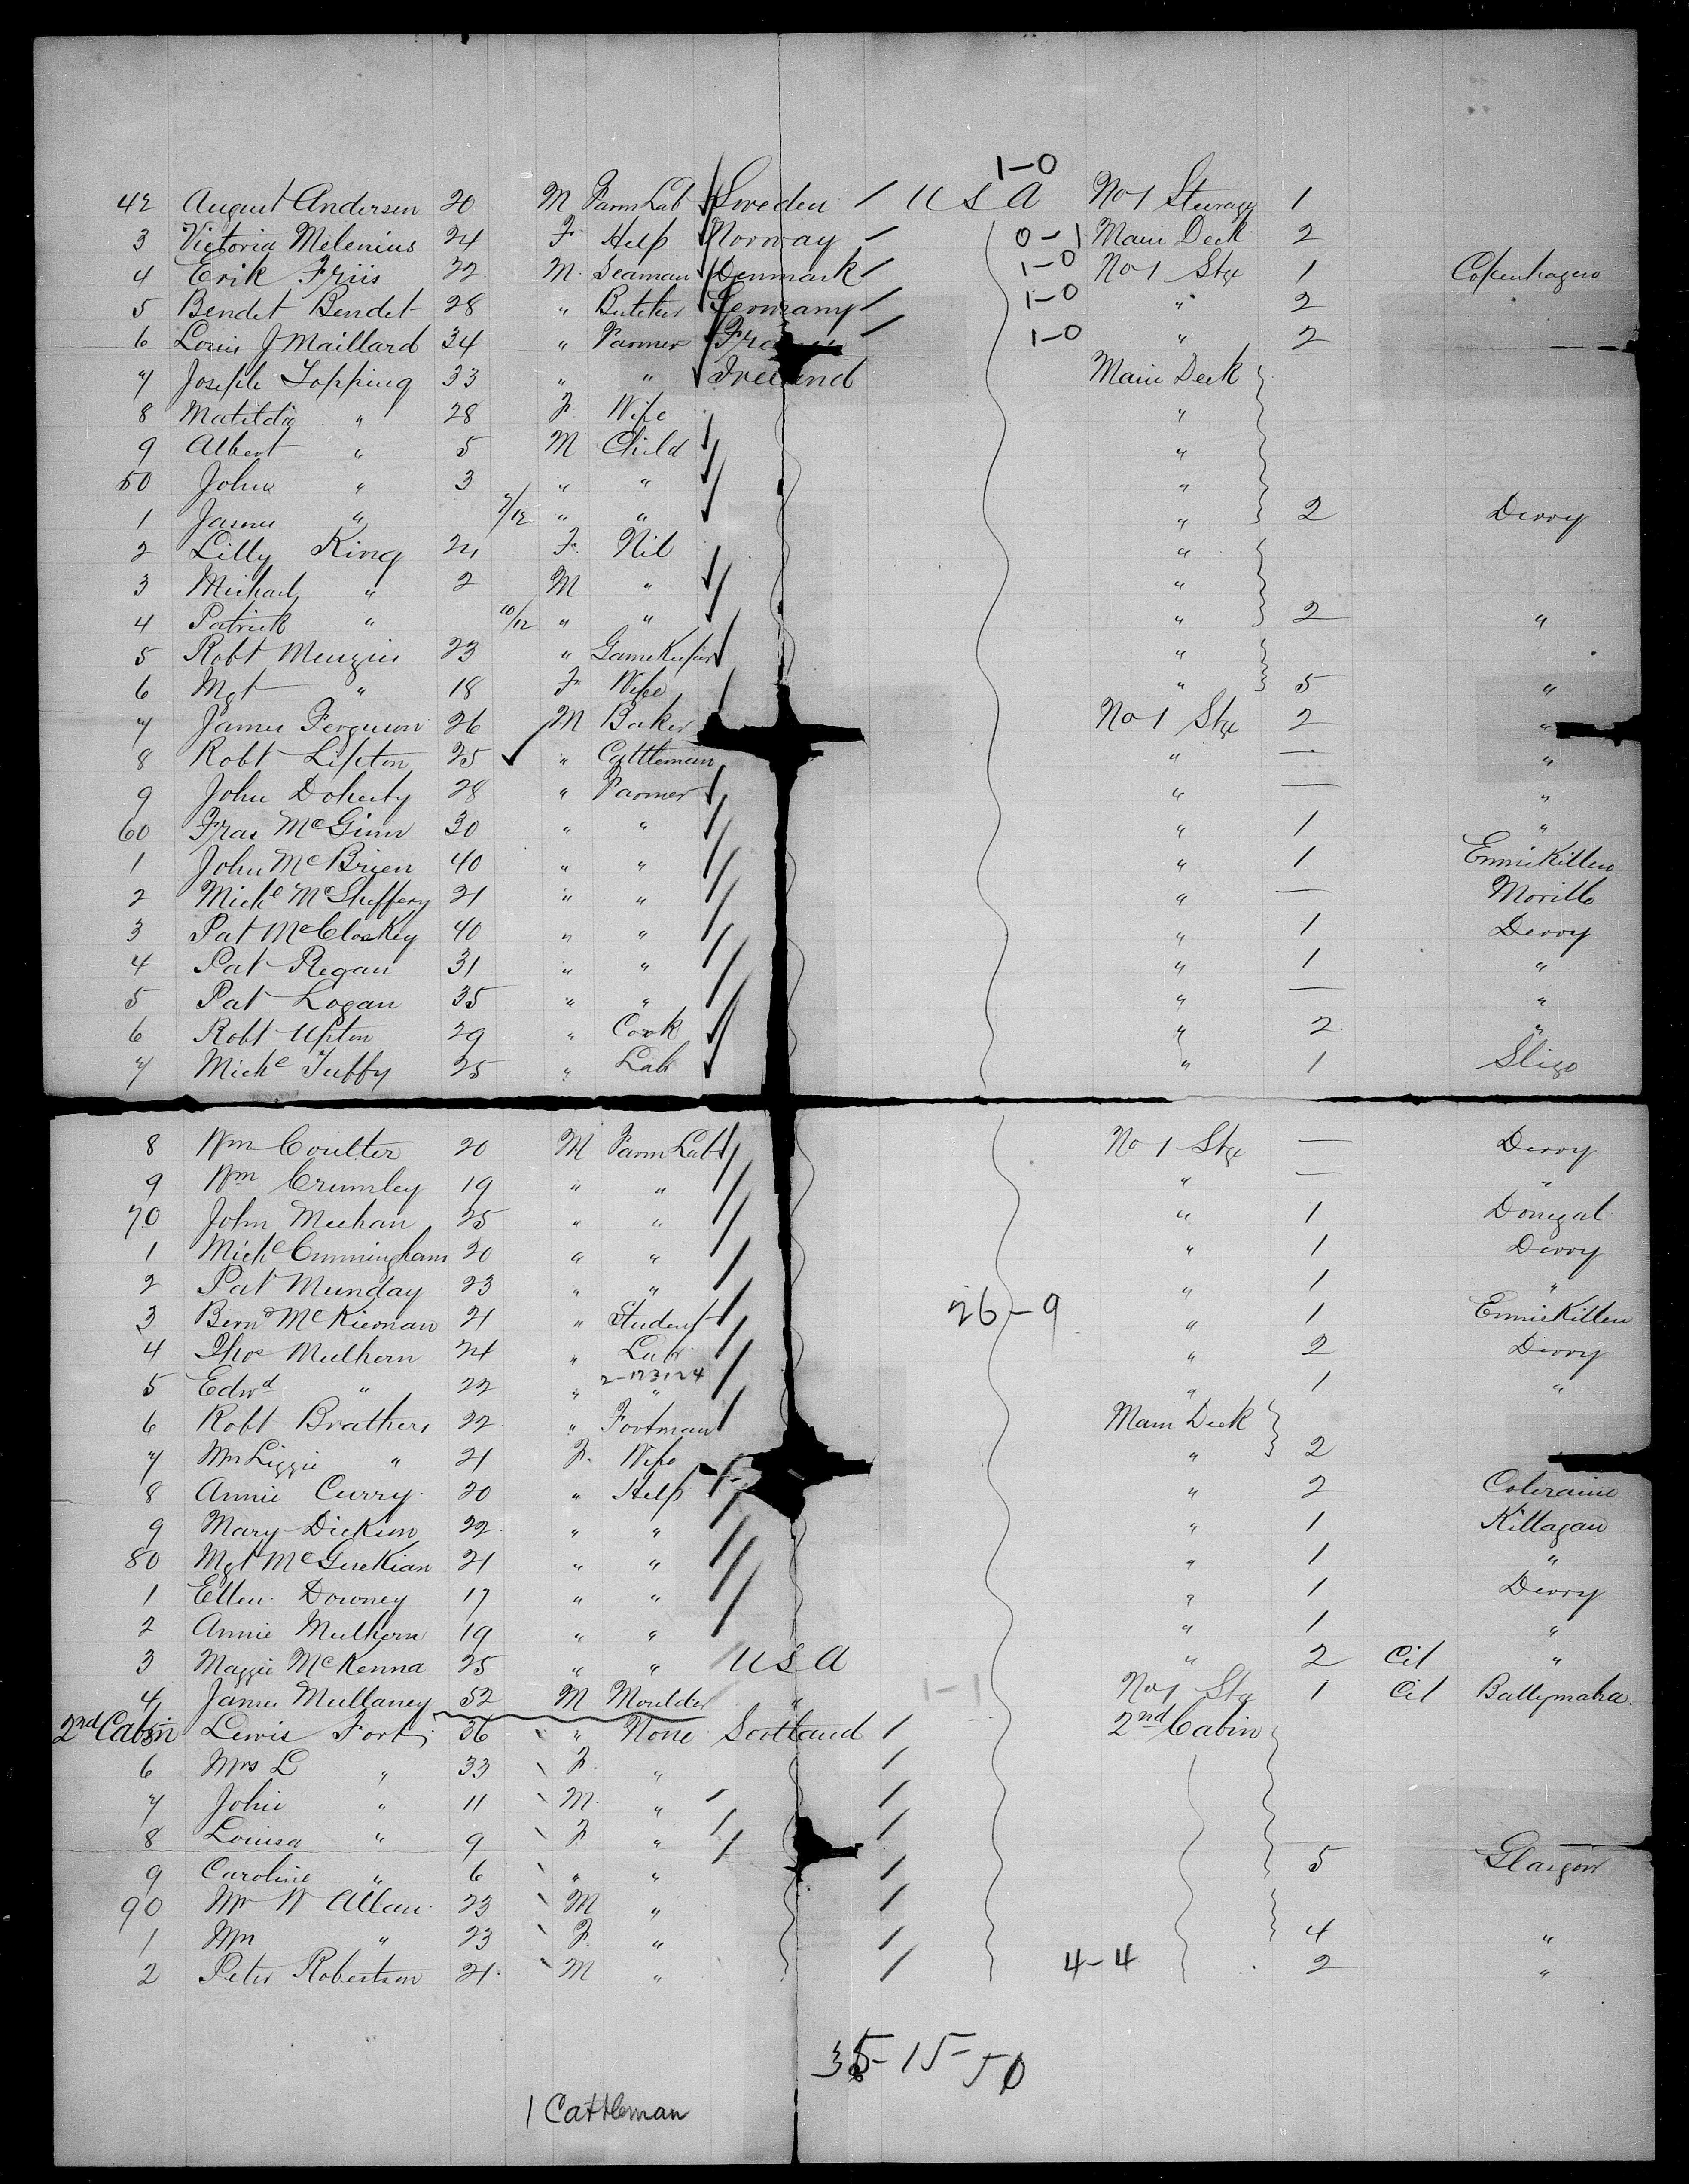 1-0
42 August Andersen 20 M Farm Lab Sweden U S A No 1 Steerage 1
3 Victoria Melenius 24 F Help Norway 0-1 Main Deck 2
4 Erik Friis 22 M. Seaman Denmark 1-0 No 1 Stge 1 Copenhagen
5 Bendet Bendet 28 " Butcher Germany 1-0 " 2
6 Louis J Maillard 34 " Farmer 1-0 " 2
7 Joseph Topping 33 " " Ireland Main Deck
8 Matilda " 28 F. Wife "
9 Albert " 5 M Child "
50 John " 3 " " "
1 James " 7/12 " " " 2 Derry
2 Lilly King 24 F. Nil "
3 Michael " 2 M " "
4 Patrick " 10/12 " " " 2 "
5 Robt Menzies 23 " GameKeeper "
6 Mgt " 18 F Wife " 5 "
7 James Ferguson 26 M Baker No 1 Stge 2 "
8 Robt Lipton 25 " Cattleman " — "
9 John Doherty 28 " Farmer " — "
60 Fras McGinn 30 " " " 1 "
1 John McBrien 40 " " " 1 EnnisKillen
2 Michl McSheffery 21 " " " — Moville
3 Pat McCloskey 40 " " " 1 Derry
4 Pat Regan 31 " " " 1 "
5 Pat Logan 35 " " " — "
6 Robt Upton 29 " Cook " 2 "
7 Michl Tuffy 25 " Lab " 1 Sligo
8 Wm Coulter 20 M Farm Lab No 1 Stge — Derry
9 Wm Crumley 19 " " " — "
70 John Meehan 25 " " " 1 Donegal
1 Michl Cunningham 20 " " " 1 Derry
2 Pat Munday 23 " " " 1 "
3 Bernd McKiernan 21 " Student 26-9 " 1 EnnisKillen
4 Thos Mulhern 24 " Lab " 2 Derry
2-173124
5 Edwd " 22 " " " 1 "
6 Robt Brathers 22 " Footman Main Deck
7 Mrs Lizzie " 21 F. Wife " 2
8 Annie Curry 20 " Help " 2 Coleraine
9 Mary Dickson 22 " " " 1 Killagan
80 Mgt McGuckian 21 " " " 1 "
1 Ellen Downey 17 " " " 1 Derry
2 Annie Mulhern 19 " " " 1 "
3 Maggie McKenna 25 " " U S A " 2 Cit "
4 James Mullaney 52 M Moulder " 1-1 No 1 Stge 1 Cit Ballymaha.
2nd Cabin 5 Lewis Fort 36 " None Scotland 2nd Cabin
6 Mrs L " 33 F. "
7 John " 11 M. "
8 Louisa " 9 F "
9 Caroline " 6 " " 5 Glasgow
90 Mr W Allan 23 M "
1 Mrs " 23 F. " 4 "
2 Peter Robertson 21 M " 4-4 2 "
35-15-50
1 Cattleman